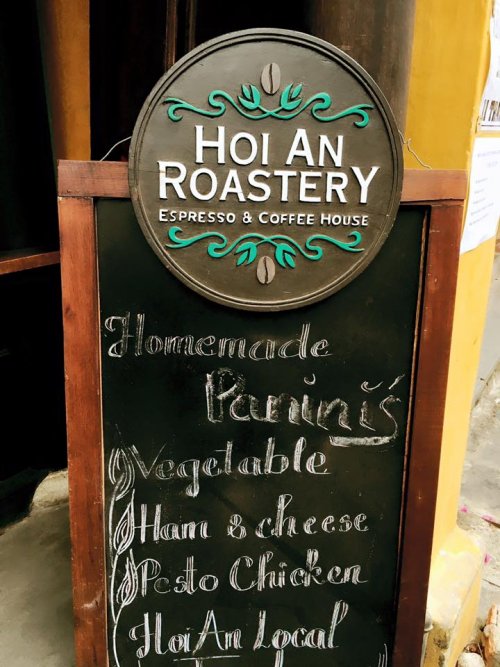 HOI AN
ROASTERY
ESPRESSO & COFFEE HOUSE
Homemade
Panini's
Vegetable
Ham & cheese
Pesto Chicken
Hoi An Local